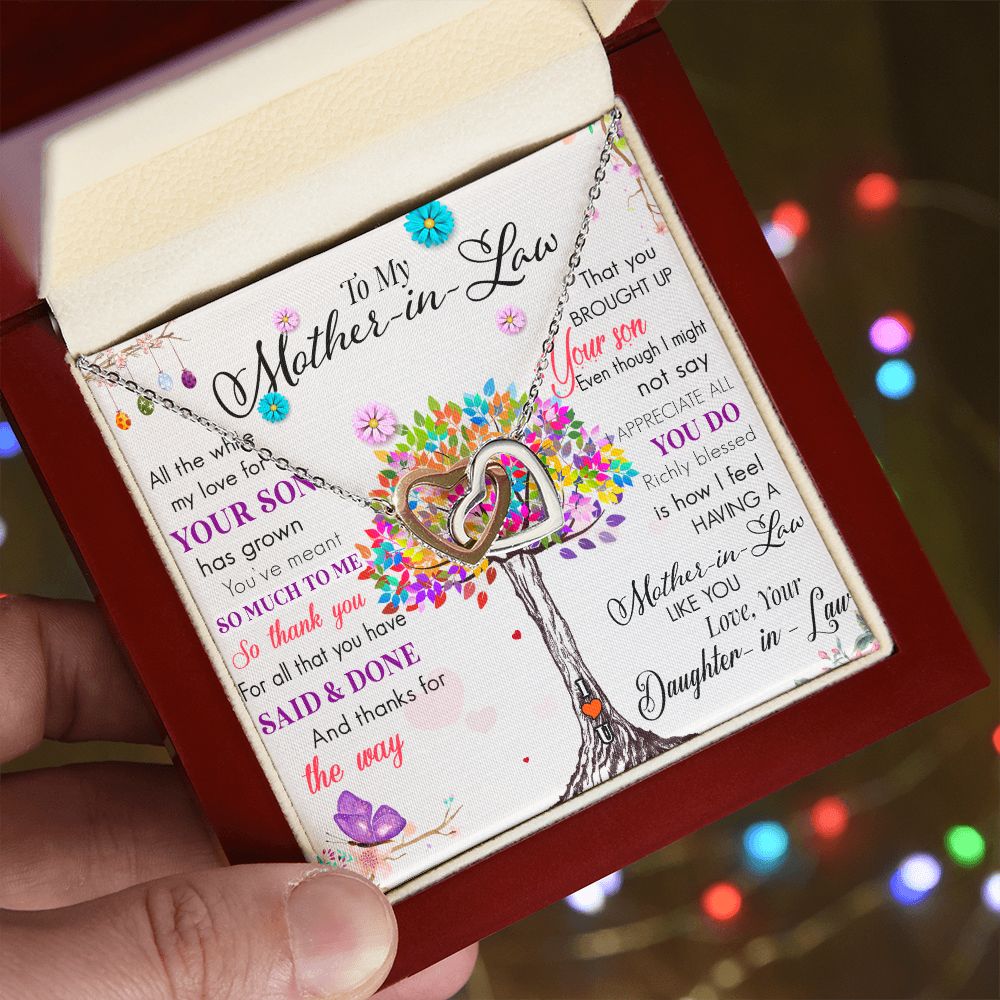 To My
Mother-in-Law
All the while
my love for
YOUR SON
has grown
You've meant
SO MUCH TO ME
So thank you
For all that you have
SAID & DONE
And thanks for
the way
That you
BROUGHT UP
Your son
Even though I might
not say
I APPRECIATE ALL
YOU DO
Richly blessed
is how I feel
HAVING A
Mother-in-Law
LIKE YOU
Love, Your
Daughter-in-Law
I
U